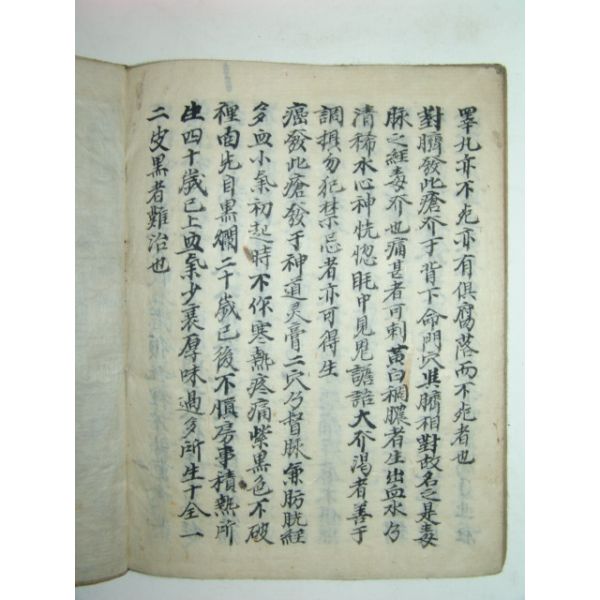 睾丸亦不死亦有俱腐落而不死者也
對臍發此瘡乔于背下命門穴與臍相對故名之是毒
脉之經毒乔也痛甚者可刺黃白稠膿者生出血水乃
清稀水心神恍惚眠中見鬼譫語大乔渴者善于
調攝勿犯禁忌者亦可得生
癌發此瘡發于神道灵膏二穴乃督脉兼肪胱經
多血小氣初起時不作寒熱疼痛紫黑色不破
裡面先自黑爛二十歲已後不愼房事積熱所
生四十歲已上血氣少衰厚味過多所生十全一
二皮黑者難治也